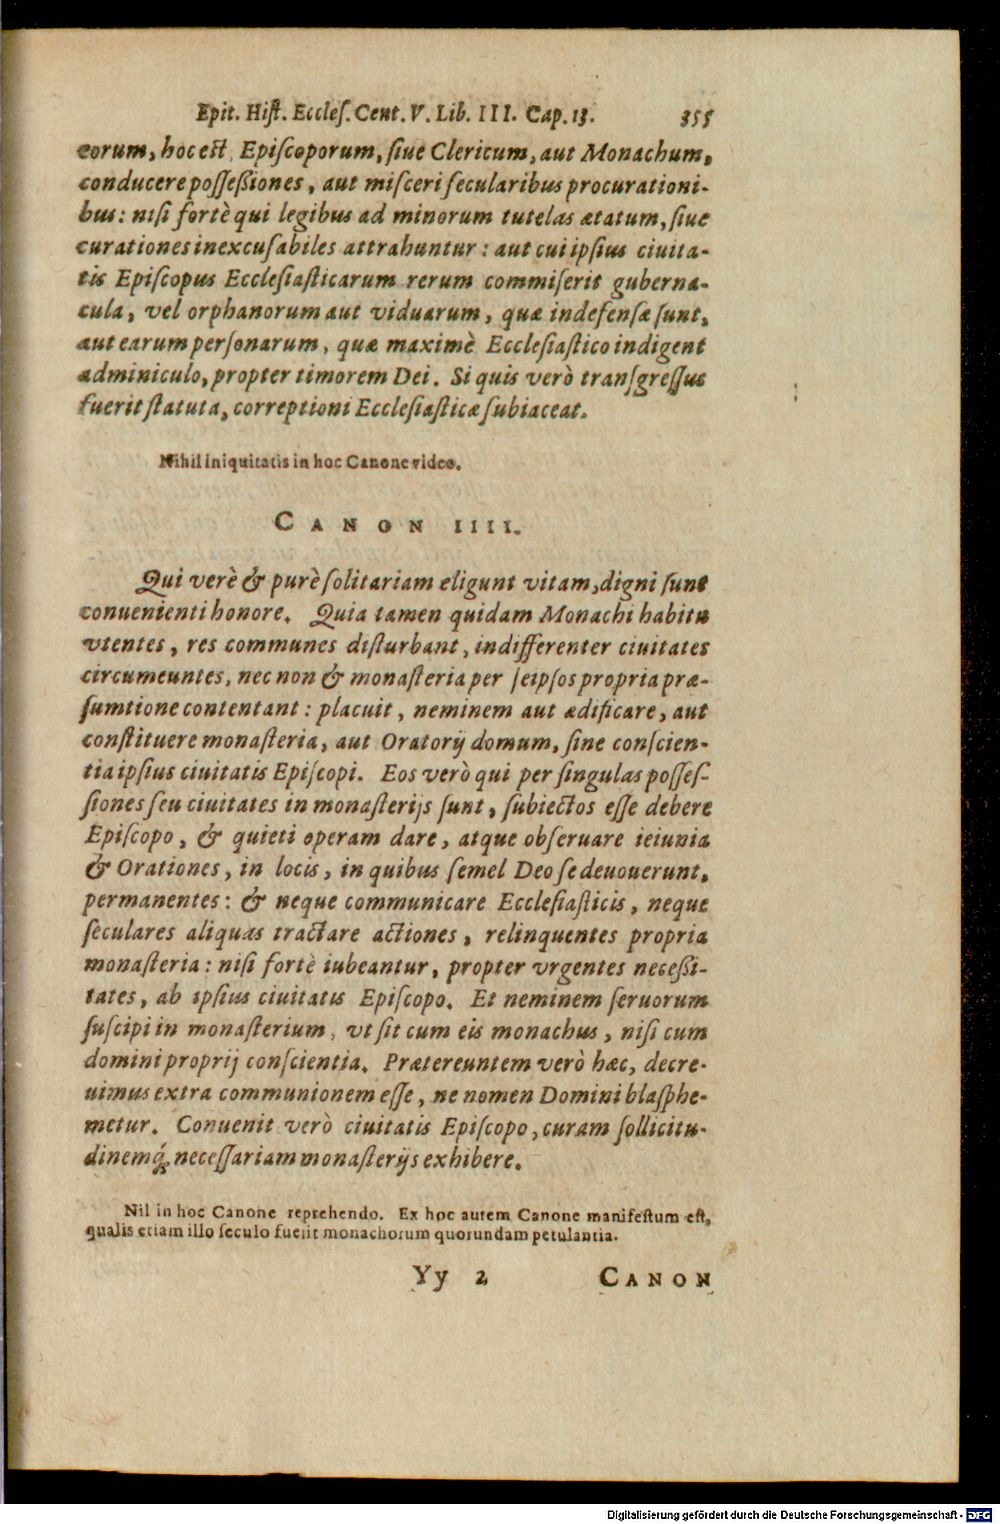 Epit. Hiſt. Eccleſ. Cent. V. Lib. III. Cap. 13. 355
eorum, hoc est, Epiſcoporum, ſiue Clericum, aut Monachum,
conducere poſſeßiones, aut miſceri ſecularibus procurationi-
bus: niſi fortè qui legibus ad minorum tutelas ætatum, ſiue
curationes inexcuſabiles attrahuntur: aut cui ipſius ciuita-
tis Epiſcopus Eccleſiaſticarum rerum commiſerit guberna-
cula, vel orphanorum aut viduarum, quæ indefenſæ ſunt,
aut earum perſonarum, quæ maximè Eccleſiaſtico indigent
adminiculo, propter timorem Dei. Si quis verò tranſgreſſus
fuerit ſtatuta, correptioni Eccleſiaſticæ ſubiaceat.
Nihil iniquitatis in hoc Canone video.
CANON IIII.
Qui verè & purè ſolitariam eligunt vitam, digni ſunt
conuenienti honore. Quia tamen quidam Monachi habitu
vtentes, res communes diſturbant, indifferenter ciuitates
circumeuntes, nec non & monaſteria per ſeipſos propria præ-
ſumtione contentant: placuit, neminem aut ædificare, aut
conſtituere monaſteria, aut Oratorij domum, ſine conſcien-
tia ipſius ciuitatis Epiſcopi. Eos verò qui per ſingulas poſſeſ-
ſiones ſeu ciuitates in monaſterijs ſunt, ſubiectos eſſe debere
Epiſcopo, & quieti operam dare, atque obſeruare ieiunia
& Orationes, in locis, in quibus ſemel Deo ſe deuouerunt,
permanentes: & neque communicare Eccleſiaſticis, neque
ſeculares aliquas tractare actiones, relinquentes propria
monaſteria: niſi fortè iubeantur, propter vrgentes neceßi-
tates, ab ipſius ciuitatis Epiſcopo. Et neminem ſeruorum
ſuſcipi in monaſterium, vt ſit cum eis monachus, niſi cum
domini proprij conſcientia. Prætereuntem verò hæc, decre-
uimus extra communionem eſſe, ne nomen Domini blaſphe-
metur. Conuenit verò ciuitatis Epiſcopo, curam ſollicitu-
dinemq́; neceſſariam monaſterijs exhibere.
Nil in hoc Canone reprehendo. Ex hoc autem Canone manifeſtum eſt,
qualis etiam illo ſeculo fuerit monachorum quorundam petulantia.
Yy 2 CANON
Digitalisierung gefördert durch die Deutsche Forschungsgemeinschaft - DFG